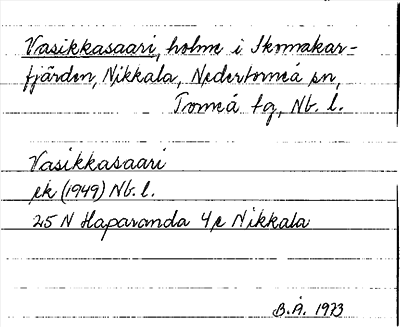 Vasikkasaari, holme i Skomakar-
fjärden, Nikkala, Nedertorneå sn,
Torneå tg, Nb. l.
Vasikkasaari
ek (1949) Nb. l.
25 N Haparanda 4 c Nikkala
B.Å. 1973